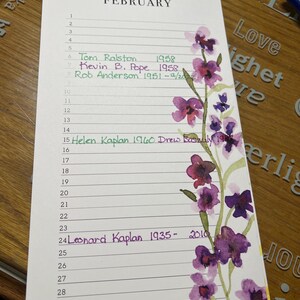 FEBRUARY
1
2
3
4
5
6 Tom Ralston 1958
7 Kevin B. Pope 1958
8 Rob Anderson 1951 -
9
10
11
12
13
14
15 Helen Kaplan 1960 Drew
16
17
18
19
20
21
22
23
24 Leonard Kaplan 1935- 2010
25
26
27
28
Love